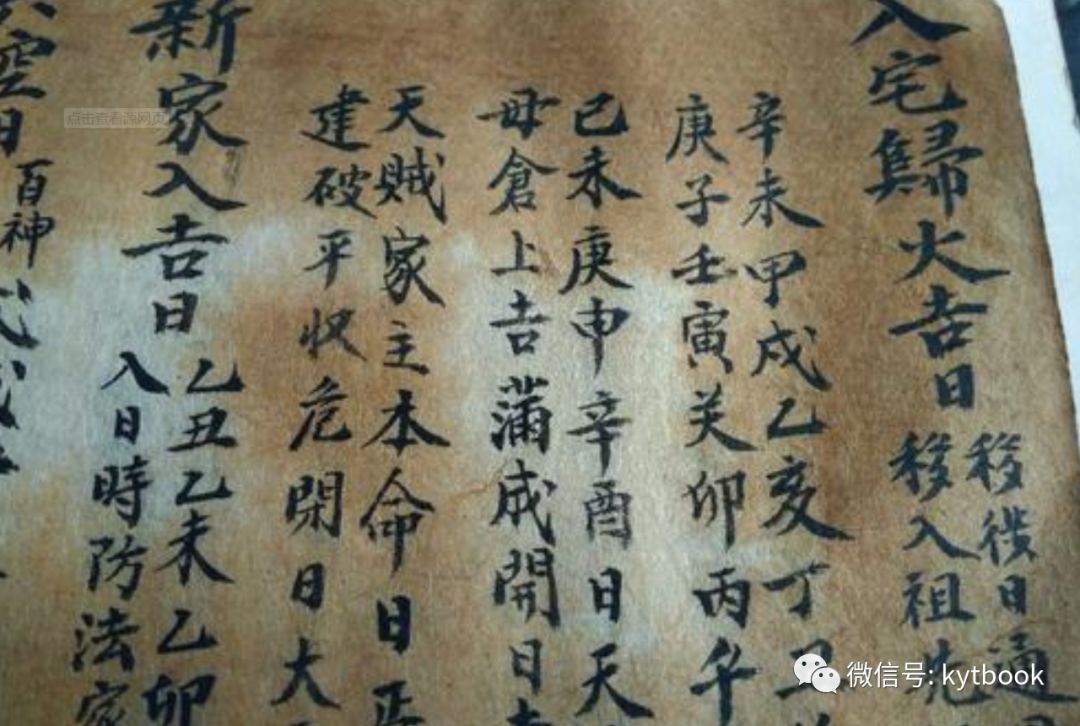 入宅歸火吉日
移徙日通
移入祖先
辛未甲戌乙亥丁丑
庚子壬寅关卯丙午
己未庚申辛酉日天
母倉上吉滿成開日
天賊家主本命日正
建破平收危閉日大
新家入吉日
乙丑乙未乙卯
入日時防法家
空日
百神
点击查看源网页
微信号: kytbook